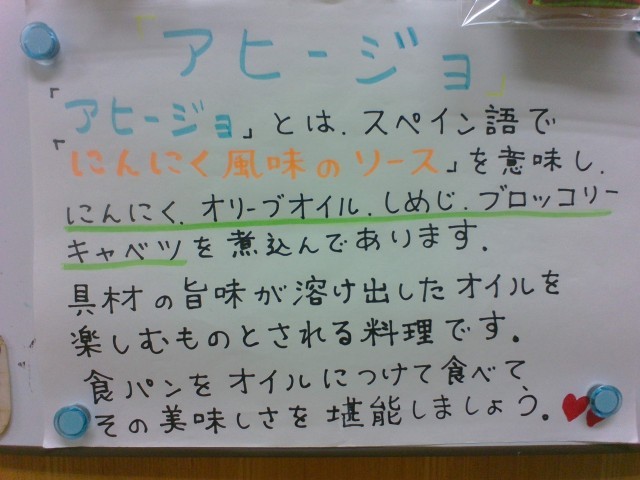 「アヒージョ」
「アヒージョ」とは、スペイン語で
「にんにく風味のソース」を意味し、
にんにく、オリーブオイル、しめじ、ブロッコリー
キャベツを煮込んであります。
具材の旨味が溶け出したオイルを
楽しむものとされる料理です。
食パンをオイルにつけて食べて、
その美味しさを堪能しましょう。